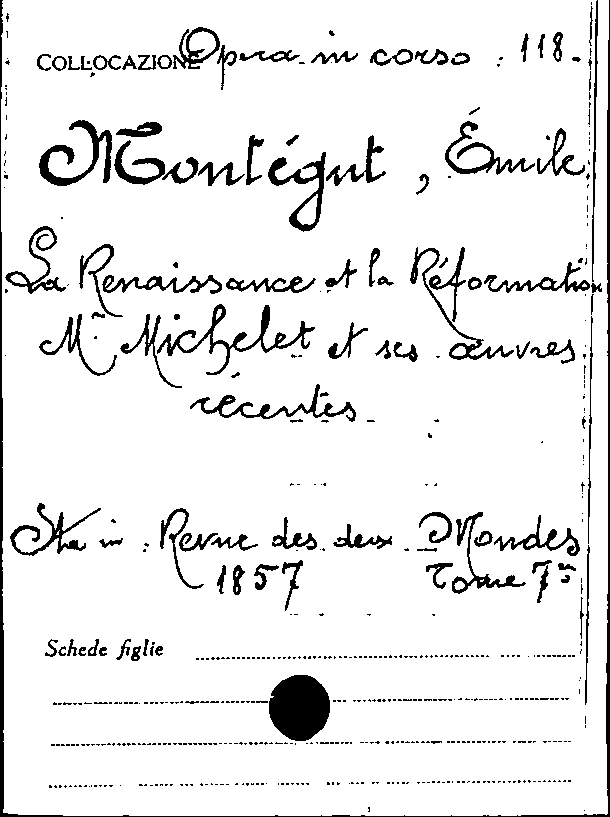 COLLOCAZIONE Opera in corso : 118.
Montégut, Émile
La Renaissance et la Réformation
Mr Michelet et ses œuvres
récentes
Sta in : Revue des deux Mondes
1857 Tome 7me
Schede figlie